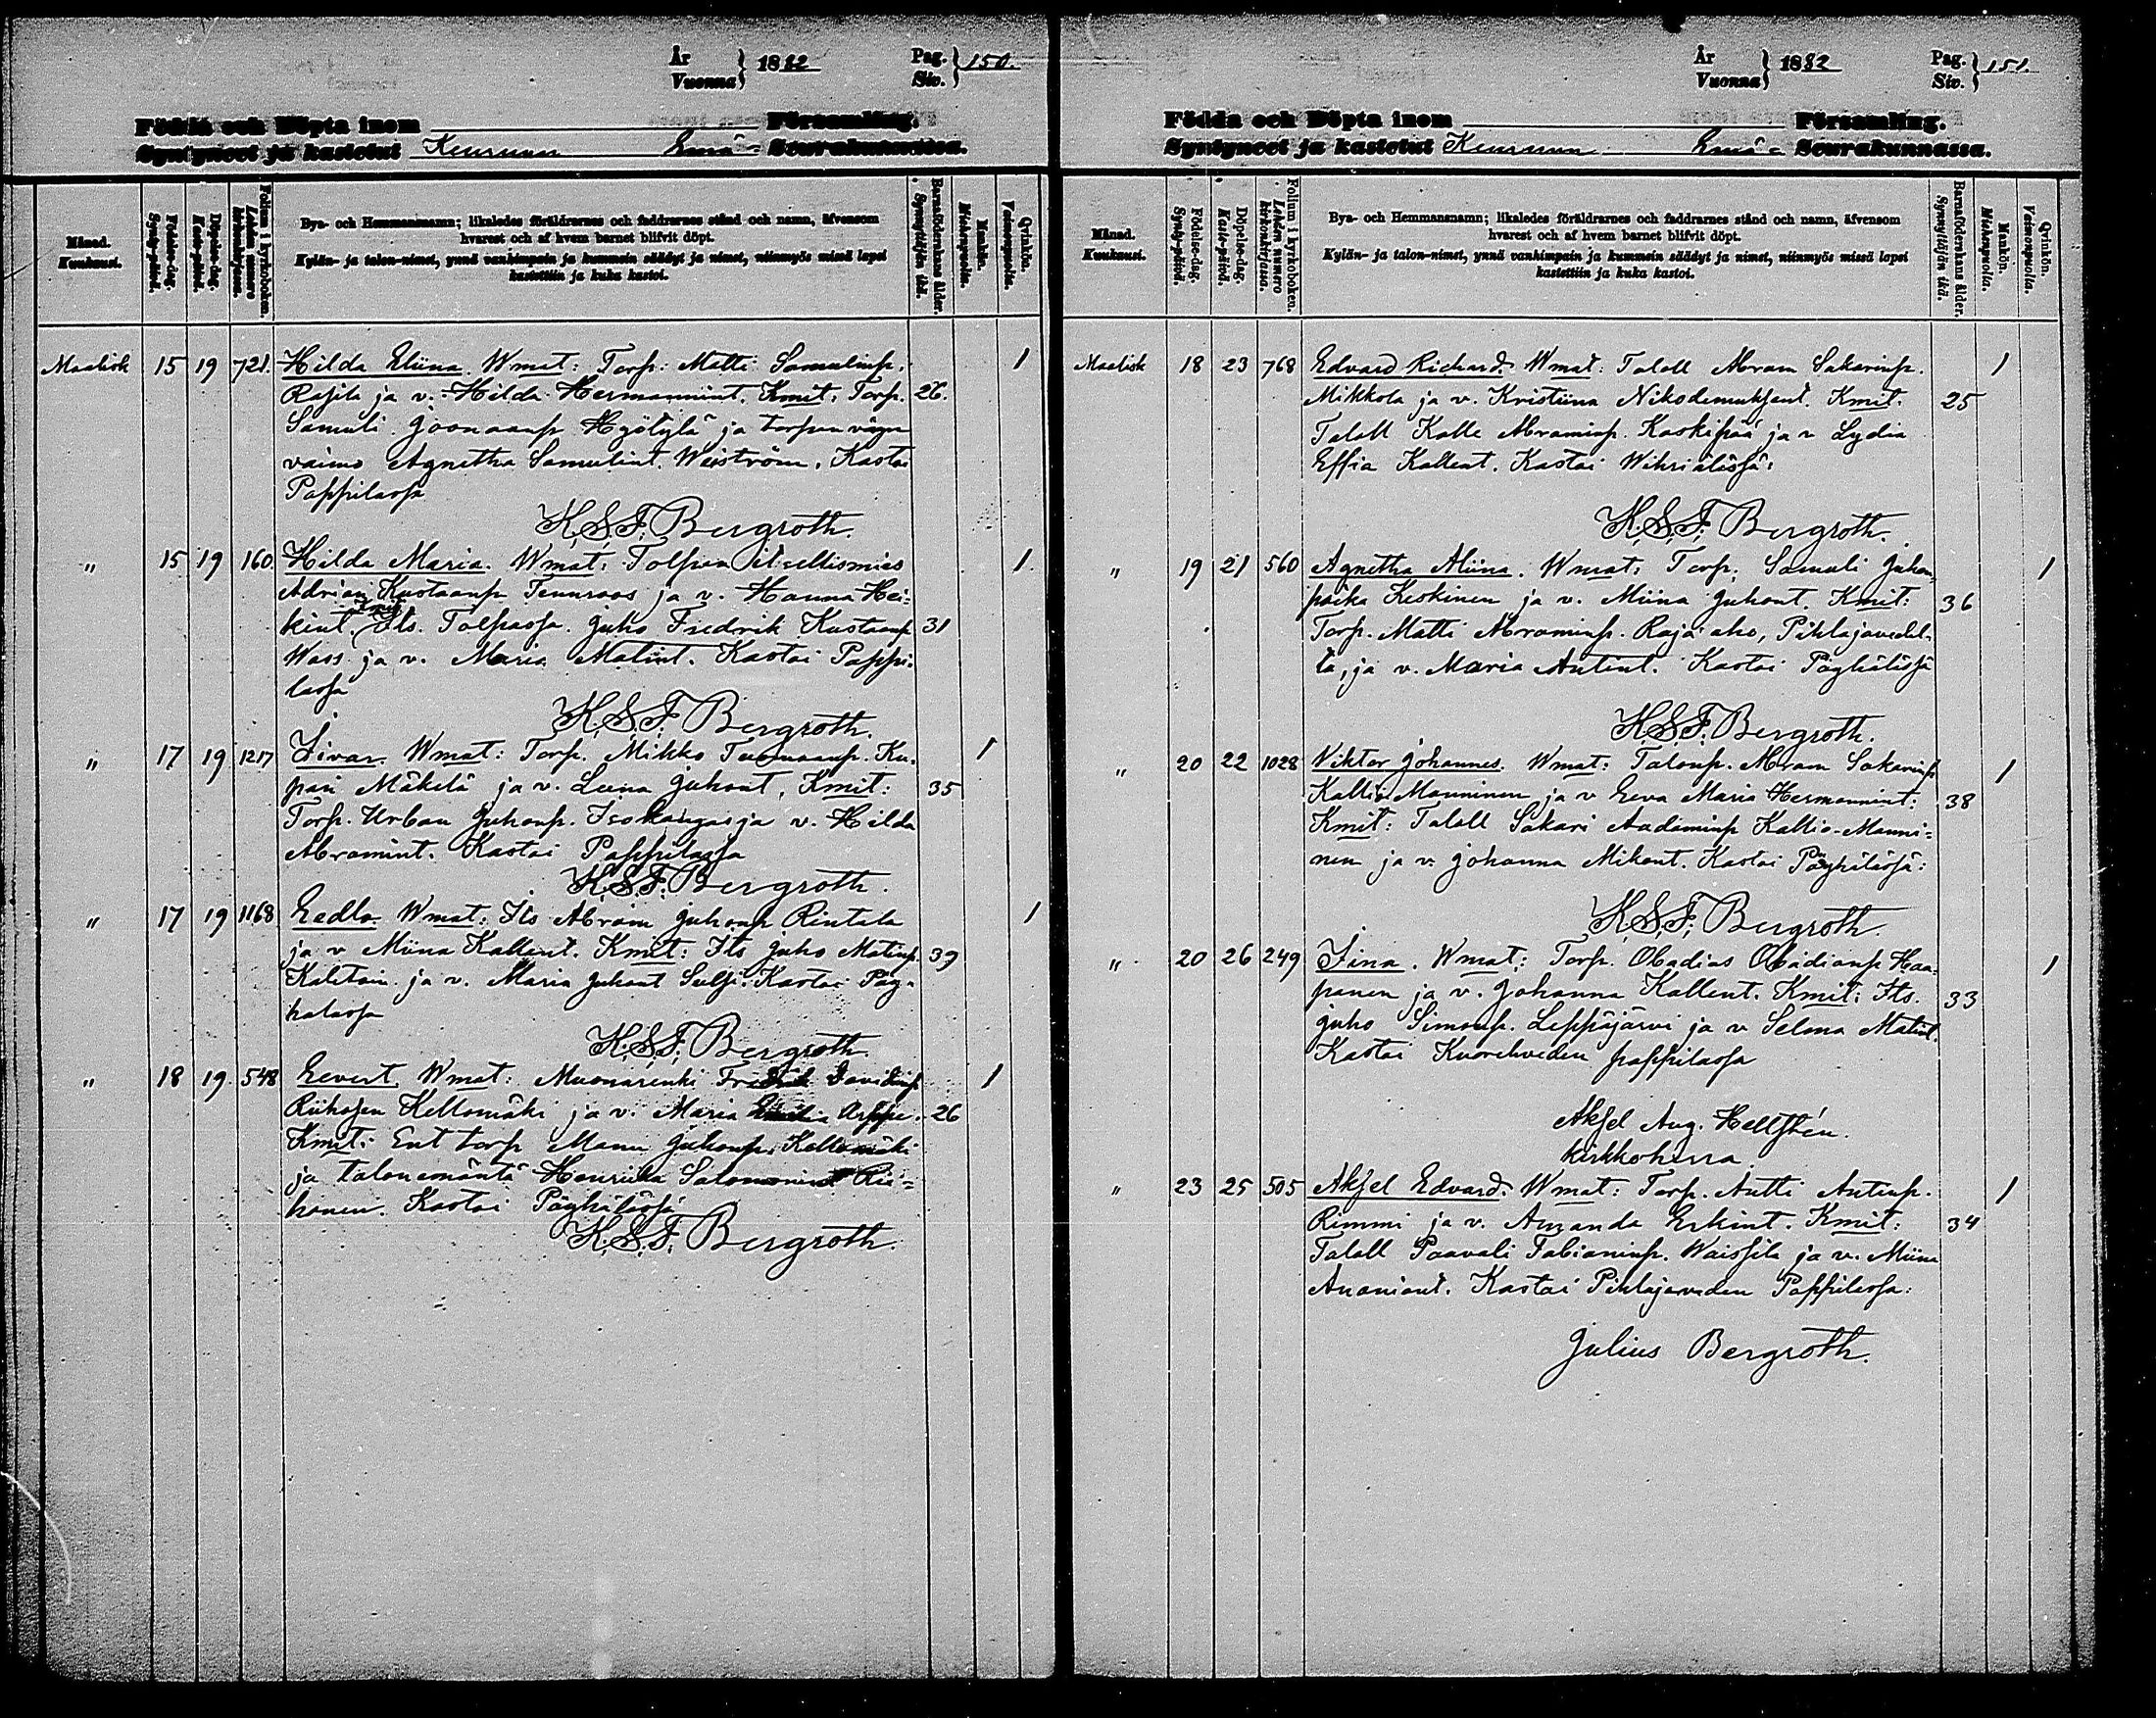 År
Vuonna } 1882 Pag.
Siv. } 150.
Födda och Döpta inom Församling.
Syntyneet ja kastetut Keuruun Emä- Seurakunnassa.
Månad.
Kuukausi.
Födelse-dag.
Synty-päivä.
Döpelse-dag.
Kaste-päivä.
Folium i kyrkoboken.
Lehden numero
kirkonkirjassa.
Bya- och Hemmansnamn; likaledes föräldrarnes och faddrarnes stånd och namn, äfvensom
hvarest och af hvem barnet blifvit döpt.
Kylän- ja talon-nimet, ynnä vanhimpain ja kummein säädyt ja nimet, niinmyös missä lapsi
kastettiin ja kuka kastoi.
Barnaföderskans ålder.
Synnyttäjän ikä.
Mankön.
Miehenpuolia.
Qvinkön.
Vaimonpuolia.
Maalisk 15 19 721. Hilda Eliina. Wmat: Torp: Matti Samulinp. 1
Rajila ja v. Hilda Hermannint. Kmit: Torp. 26.
Samuli Joonaanp Hyötylä ja torpan väyn
vaimo Agnetha Samulint. Weiström. Kastoi
Pappilassa
K.S.F. Bergroth.
" 15 19 160. Hilda Maria. Wmat: Tolpan itsellismies 1.
Adrian Kustaanp Tennroos ja v. Hanna Hei=
kint. Kmit: Its. Tolpassa. Juho Fredrik Kustaanp 31
Wass ja v. Maria Matint. Kastoi Pappi-
lassa
K.S.F. Bergroth.
" 17 19 1217 Iivar. Wmat: Torp. Mikko Tuomaanp. Ku- 1
pari Mäkelä ja v. Leena Juhont, Kmit: 35
Torp. Urban Juhonp. Isokangas ja v. Hilda
Abramint. Kastoi Pappilassa
K.S.F. Bergroth.
" 17 19 1168 Eedla. Wmat: Its Abram Juhonp Rintala 1
ja v Miina Kallent. Kmit: Its Juho Matinp. 39
Kaltain ja v. Maria Juhont Kastoi Päy-
halassa
K.S.F. Bergroth
" 18 19. 548 Eevert. Wmat: Muonarenki Fredrik Davidinp 1
Riihosen Kellomäki ja v. Maria Emilia Arppe. 26
Kmit: Ent torp Manu Juhonp. Kellomäki
ja talonemäntä Henriika Salomonint Rii=
honen. Kastoi Päyhälässä
K.S.F. Bergroth.
År
Vuonna } 1882 Pag.
Siv. } 151.
Födda och Döpta inom Församling.
Syntyneet ja kastetut Keuruun Emä- Seurakunnassa.
Månad.
Kuukausi.
Födelse-dag.
Synty-päivä.
Döpelse-dag.
Kaste-päivä.
Folium i kyrkoboken.
Lehden numero
kirkonkirjassa.
Bya- och Hemmansnamn; likaledes föräldrarnes och faddrarnes stånd och namn, äfvensom
hvarest och af hvem barnet blifvit döpt.
Kylän- ja talon-nimet, ynnä vanhimpain ja kummein säädyt ja nimet, niinmyös missä lapsi
kastettiin ja kuka kastoi.
Barnaföderskans ålder.
Synnyttäjän ikä.
Mankön.
Miehenpuolia.
Qvinkön.
Vaimonpuolia.
Maalisk 18 23 768 Edvard Richard. Wmat: Taloll Abram Sakarinp. 1
Mikkola ja v. Kristiina Nikodemuksent. Kmit. 25
Taloll Kalle Abraminp. Koskipää ja v Lydia
Effia Kallent. Kastoi Wihriälässä:
K.S.F. Bergroth.
" 19 21 560 Agnetha Aliina. Wmat: Torp. Samuli Juhon 1
poika Keskinen ja v. Miina Juhont. Kmit: 36
Torp. Matti Abraminp. Raja-aho, Pihlajavedel-
tä, ja v. Maria Antint. Kastoi Päyhälässä
K.S.F. Bergroth.
" 20 22 1028 Viktor Johannes. Wmat: Talonp. Abram Sakarinp 1
Kallio-Manninen ja v Eeva Maria Hermannint: 38
Kmit: Taloll Sakari Aadaminp Kallio-Manni=
nen ja v. Johanna Mikont. Kastoi Päyhälässä:
K.S.F. Bergroth.
" 20 26 249 Iina. Wmat: Torp. Obadias Obadianp Haa= 1
panen ja v. Johanna Kallent. Kmit: Its. 33
Juho Simonp. Leppäjärvi ja v Selma Matint.
Kastoi Kuorehveden pappilassa
Aksel Aug. Hellstén.
kirkkoherra.
" 23 25 505 Aksel Edvard. Wmat: Torp. Antti Antinp. 1
Rimmi ja v. Amanda Erkint. Kmit: 34
Taloll Paavali Fabianinp. Waissila ja v. Miina
Ananiant. Kastoi Pihlajaveden Pappilassa:
Julius Bergroth.